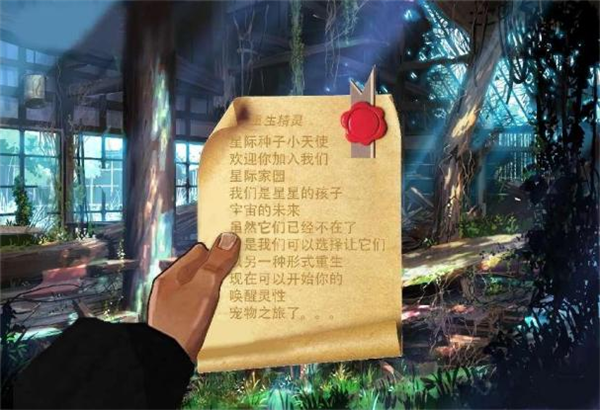 生精灵
星际种子小天使
欢迎你加入我们
星际家园
我们是星星的孩子
宇宙的未来
虽然它们已经不在了
是我们可以选择让它们
另一种形式重生
现在可以开始你的
唤醒灵性
宠物之旅了。。。